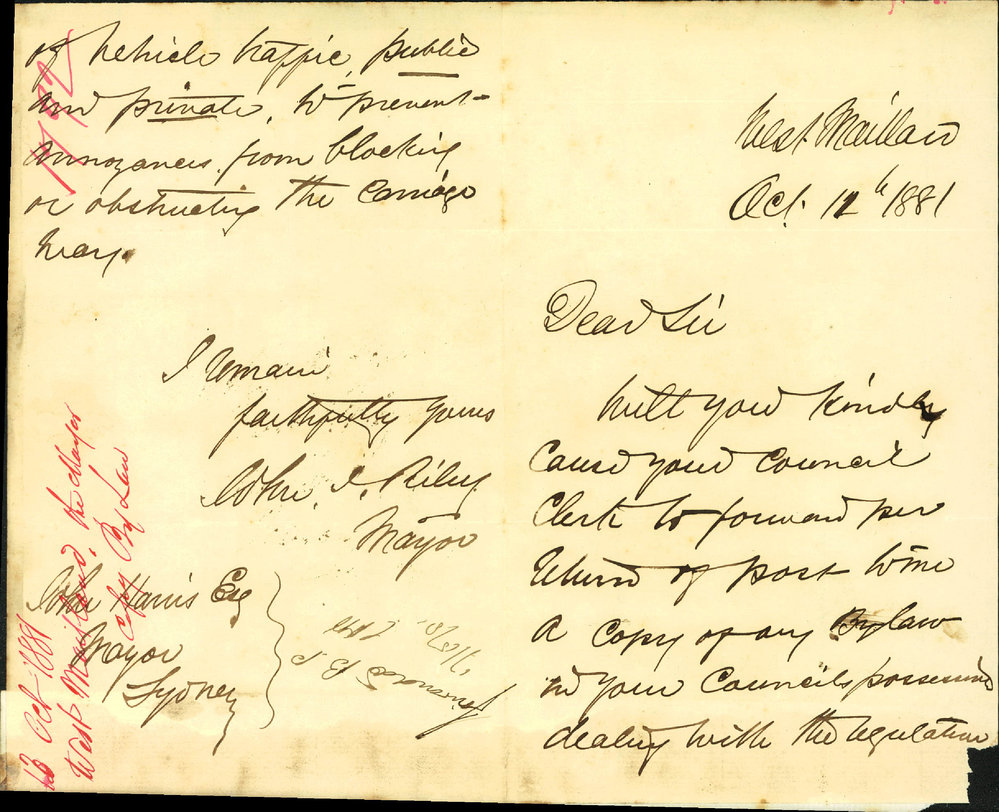 West Maitland
Oct. 12th 1881
Dear Sir
Will you kindly
cause your Council
Clerk to forward per
return of post to me
a copy of any Bylaw
in your Councils possession
dealing with the regulation
of vehicle traffic, public
and private, to prevent
annoyances from blocking
or obstructing the carriage
way.
I remain
faithfully yours
John I. Riley
Mayor
John Harris Esq
Mayor
Sydney
13 Oct 1881
West Maitland, the Mayor
Copy By Law